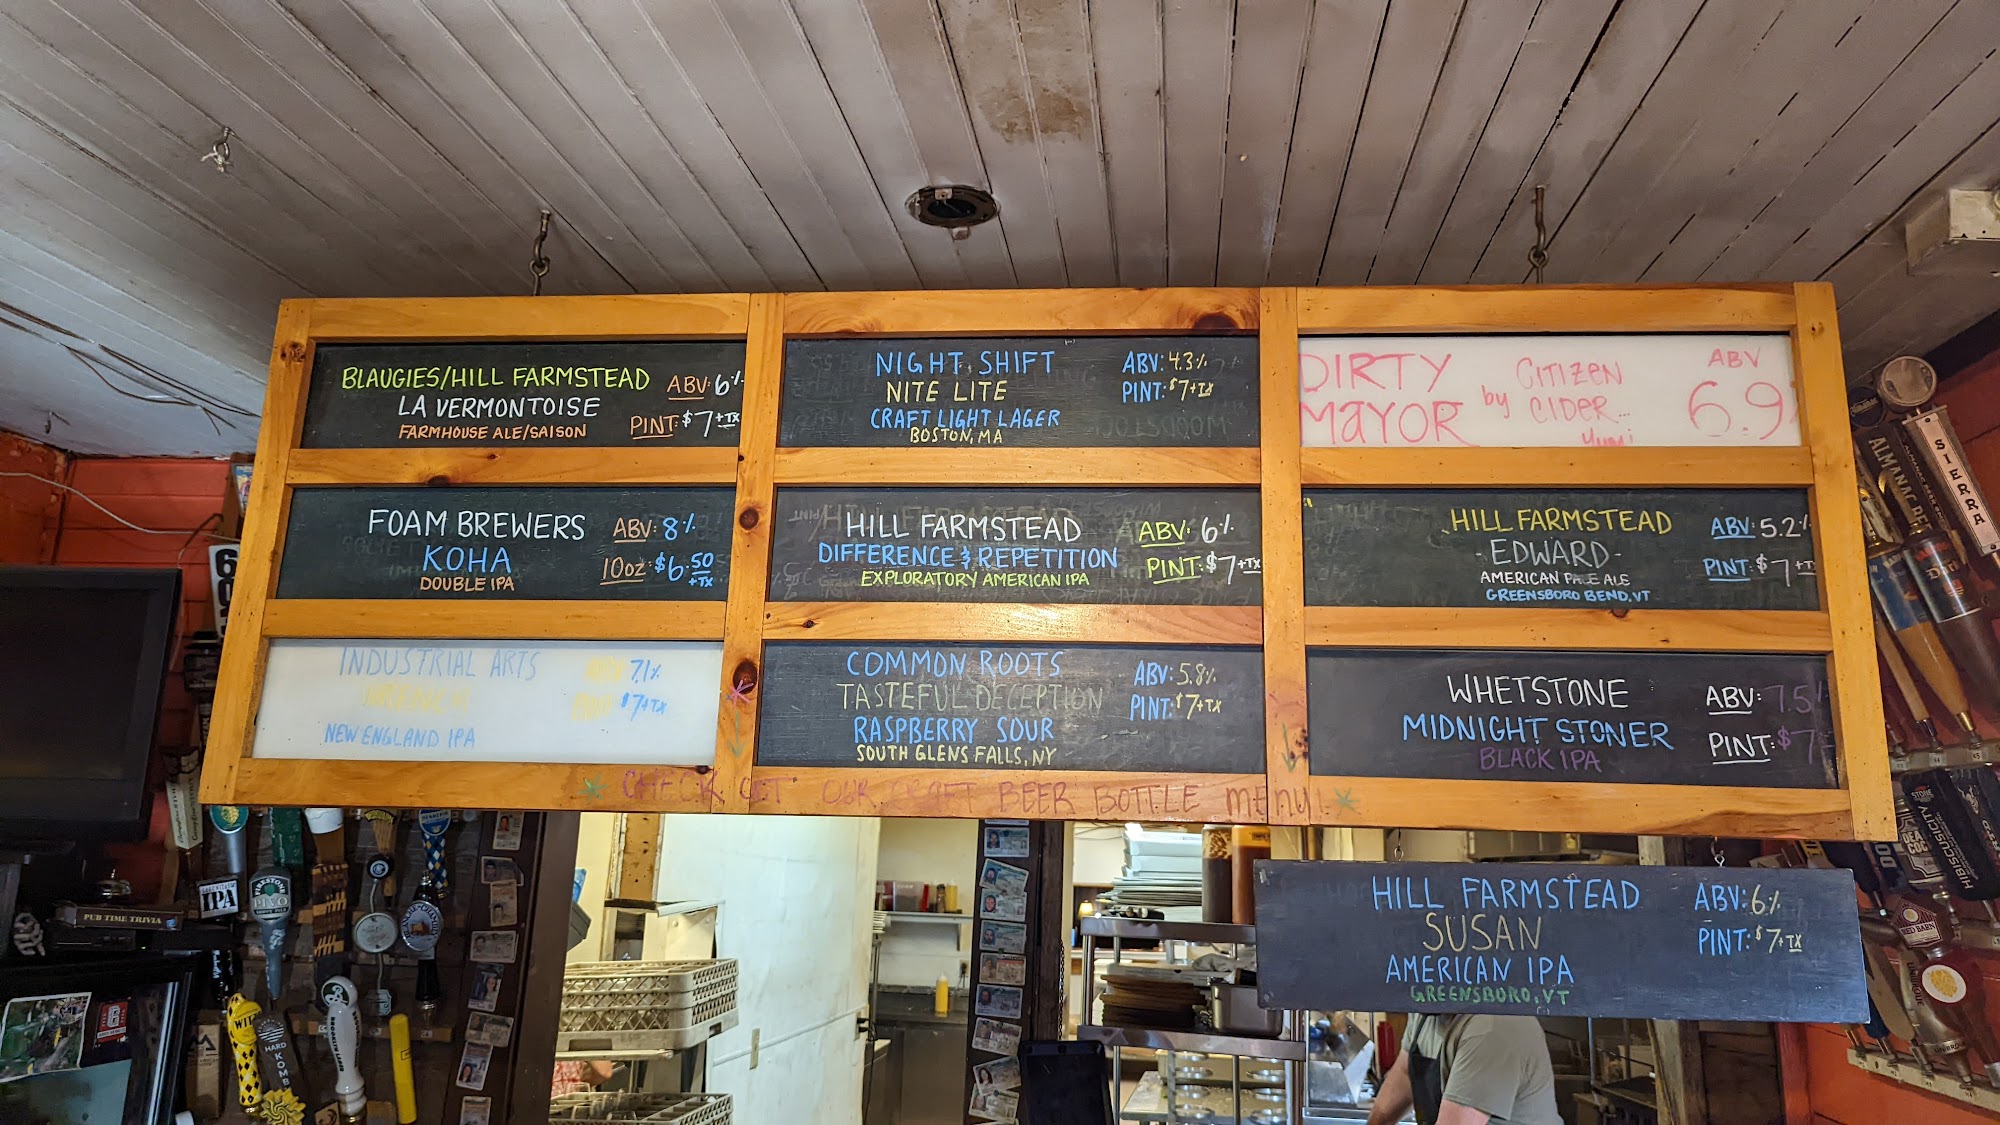 BLAUGIES/HILL FARMSTEAD
LA VERMONTOISE
FARMHOUSE ALE/SAISON
ABV: 6%
PINT: $7+TX
NIGHT SHIFT
NITE LITE
CRAFT LIGHT LAGER
BOSTON, MA
ABV: 4.3%
PINT: $7+TX
DIRTY
MAYOR
by
CITIZEN
CIDER...
Yum!
ABV
6.9%
FOAM BREWERS
KOHA
DOUBLE IPA
ABV: 8%
10oz: $6.50
+TX
HILL FARMSTEAD
DIFFERENCE & REPETITION
EXPLORATORY AMERICAN IPA
ABV: 6%
PINT: $7+TX
HILL FARMSTEAD
-EDWARD-
AMERICAN PALE ALE
GREENSBORO BEND, VT
ABV: 5.2%
PINT: $7+TX
INDUSTRIAL ARTS
WRENCH
NEW ENGLAND IPA
ABV: 7.1%
PINT: $7+TX
COMMON ROOTS
TASTEFUL DECEPTION
RASPBERRY SOUR
SOUTH GLENS FALLS, NY
ABV: 5.8%
PINT: $7+TX
WHETSTONE
MIDNIGHT STONER
BLACK IPA
ABV: 7.5%
PINT: $7
* CHECK OUT OUR CRAFT BEER BOTTLE MENU! *
HILL FARMSTEAD
SUSAN
AMERICAN IPA
GREENSBORO, VT
ABV: 6%
PINT: $7+TX
SIERRA
ALMANAC BEER
PUB TIME TRIVIA
IPA
FIRESTONE
PIVO
HARD
KOMB
BROOKLYN LAGER
STONE
HIBISCUSICITY
RED BARN